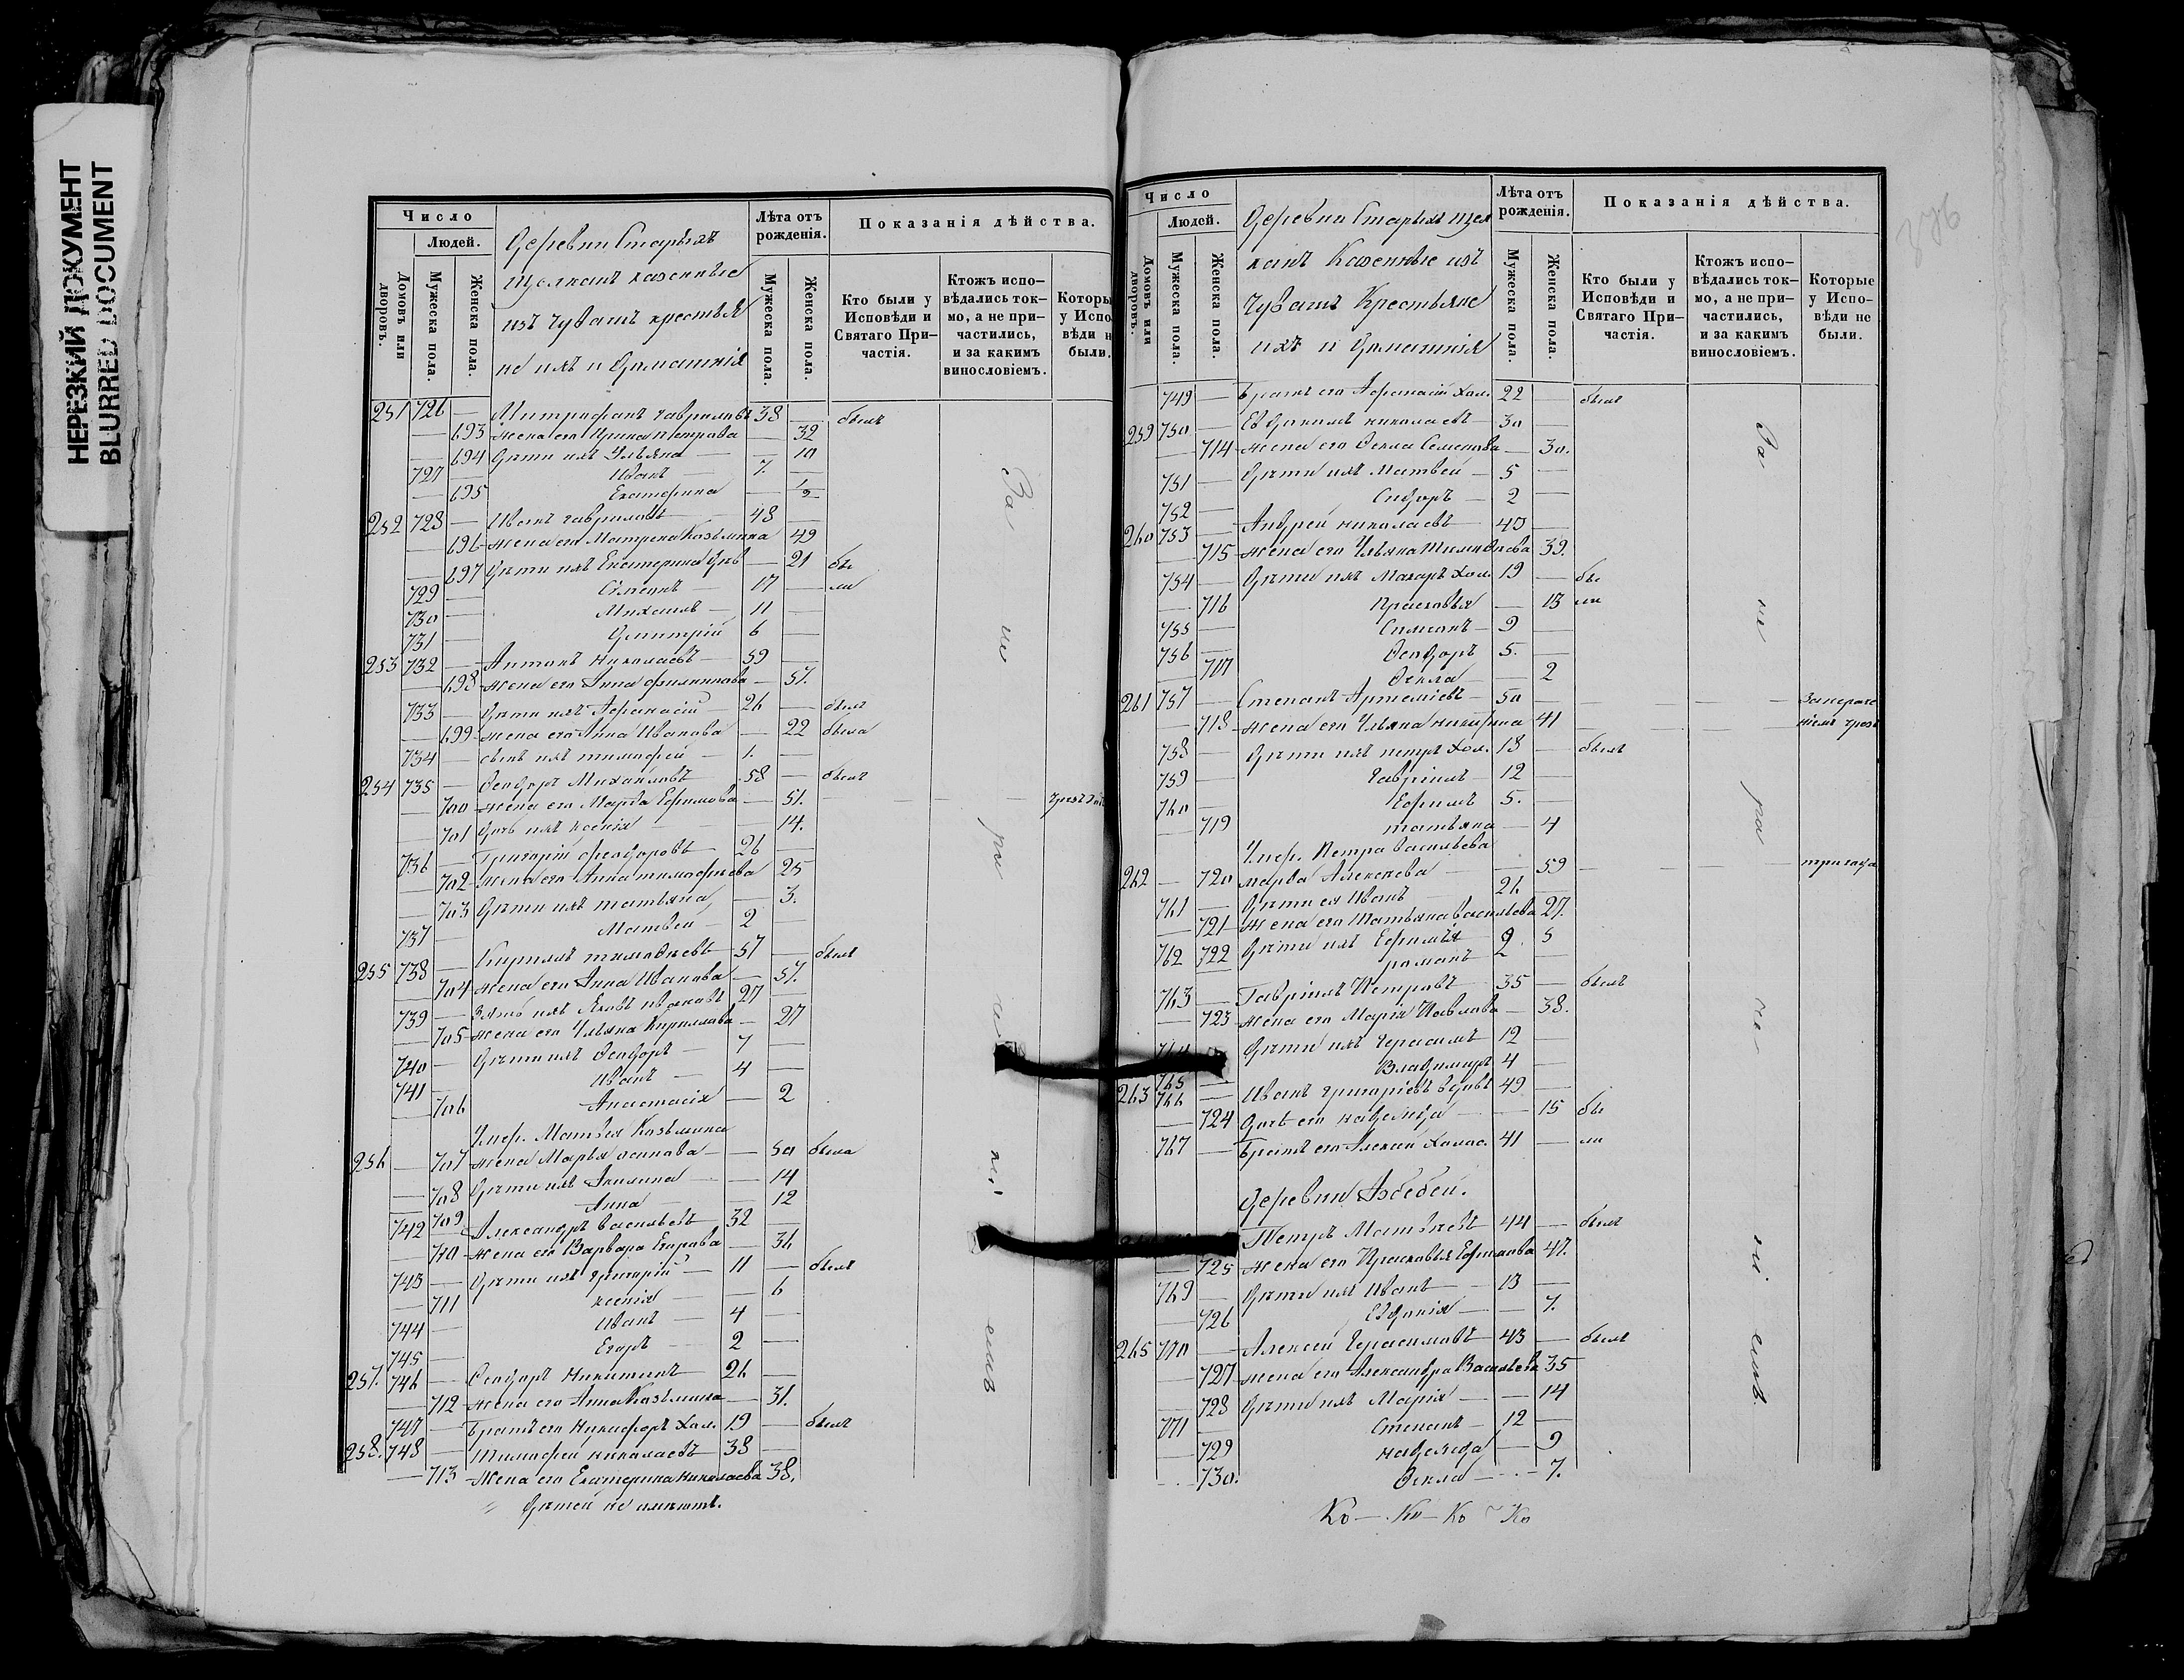 НЕРЕЗКИЙ ДОКУМЕНТ
BLURRED DOCUMENT
Число
Людей.
Домовъ или дворовъ.
Мужеска пола.
Женска пола.
Деревни Старыхъ
Щелканъ казенные
изъ Чувашъ крестья
не ихъ и домашнія
Лѣта отъ рожденія.
Мужеска пола.
Женска пола.
Показанія дѣйства.
Кто были у Исповѣди и Святаго Причастія.
Ктожъ исповѣдались токмо, а не причастились, и за какимъ винословіемъ.
Которы
у Испо
вѣди н
были.
251 726 — Митрофанъ Гавриловъ 38 — былъ
— 693 жена его Ирина Петрова — 32
— 694 Дѣти ихъ Ульяна — 10
727 — Иванъ 7. —
— 695 Екатерина — 1/2
252 728 — Иванъ Гавриловъ 48 —
— 696 жена его Матрена Козьмина 49
— 697 Дѣти ихъ Екатерина — 21 бы
729 — Симеонъ — 17 — ли
730 — Михаилъ — 11 —
731 — Димитрій 6 —
253 732 — Антонъ Николаевъ — 59 —
— 698 жена его Анна Филиппова — 57.
733 — Дѣти ихъ Афанасій 26 — былъ
— 699 жена его Анна Иванова — 22 была
734 — сынъ ихъ Тимофей — 1. —
254 735 — Ѳеодоръ Михайловъ 58 — былъ
— 700 жена его Марѳа Ефимова — 51.
— 701 Дочь ихъ Ксенія — 14.
736 — Григорій Феодоровъ 26 —
— 702 жена его Анна Тимофеева 25
— 703 Дѣти ихъ Татьяна — 3.
737 — Матвей — 2 —
255 738 — Кириллъ Тимофеевъ 57 — былъ
— 704 жена его Анна Иванова — 57.
739 — Зять ихъ Яковъ Ивановъ 27 —
— 705 жена его Ульяна Кириллова — 27
740 — Дѣти ихъ Ѳеодоръ — 7 —
741 — Иванъ — 4 —
— 706 Анастасія — 2
Умер. Матвея Козьмина
256 — 707 жена Марья Осипова — 50 была
— 708 Дѣти ихъ Акилина — 14
709 Анна — 12
742 — Александръ Васильевъ 32 —
— 710 жена его Варвара Егорова — 36
743 — Дѣти ихъ Григорій — 11 — былъ
— 711 Ксенія — 6
744 — Иванъ — 4 —
745 — Егоръ — 2 —
257. 746 — Ѳеодоръ Никитинъ — 26 —
— 712 жена его Анна Козьмина — 31.
747 — Братъ его Никифоръ Хол. 19 — былъ
258. 748 — Тимофей Николаевъ 38 —
— 713 Жена его Екатерина Николаева 38.
Дѣтей не имѣютъ.
Число
Людей.
Домовъ или дворовъ.
Мужеска пола.
Женска пола.
Деревни Старыхъ Щел
канъ Казенные изъ
Чувашъ Крестьяне
ихъ и Домашнія
Лѣта отъ рожденія.
Мужеска пола.
Женска пола.
Показанія дѣйства.
Кто были у Исповѣди и Святаго Причастія.
Ктожъ исповѣдались токмо, а не причастились, и за какимъ винословіемъ.
Которые у Исповѣди не были.
749 — Братъ его Афанасій Хол. 22 — былъ
259 750 — Евдокимъ Николаевъ — 30 —
— 714 жена его Ѳекла Семенова — 30.
751 — Дѣти ихъ Матвей — 5 —
752 — Сидоръ — 2 —
260 753 — Андрей Николаевъ — 40 —
— 715 жена его Ульяна Тимофеева 39.
754 — Дѣти ихъ Макаръ Хол. 19 — бы
— 716 Прасковья — 13 ли
755 — Симеонъ — 9 —
756 — Ѳеодоръ 5. —
— 717 Ѳекла — 2
261 757 — Степанъ Артеміевъ — 50
— 718 жена его Ульяна 41
758 — Дѣти ихъ Петръ Хол. 18 — былъ
759 — Гавріилъ — 12 —
760 — Ефимъ 5. —
— 719 Татьяна — 4
Умер. Петра Васильева
262 — 720 Марѳа Алексеева — 59 — три года
761 — Дѣти ея Иванъ 26 —
— 721 Жена его Татьяна Васильева 27.
722 Дѣти ихъ — 5
762 Романъ — 2 —
763 — Гавріилъ Петровъ 35 — былъ
— 723 жена его Марія Павлова — 38.
Дѣти ихъ Герасимъ 12 —
765 — Владимиръ 4 —
263 766 — Иванъ Григоріевъ вдовъ 49 —
— 724 Дочь его Надежда — 15 бы
767 — Братъ его Алексей Холос. 41 — ли
Деревни Азбебей.
Петръ Матвеевъ 44 — былъ
— 725 жена его Прасковья Ефимова 47.
769 — Дѣти ихъ Иванъ — 13 —
— 726 Евдокія — 7.
265 770 — Алексей Герасимовъ 43 — былъ
— 727 жена его Александра Васильева 35
— 728 Дѣти ихъ Марія — 14
771 — Степанъ — 12 —
— 729 Надежда — 9
— 730. Ѳекла — 7.
Ко — Ко — Ко — Ко
376